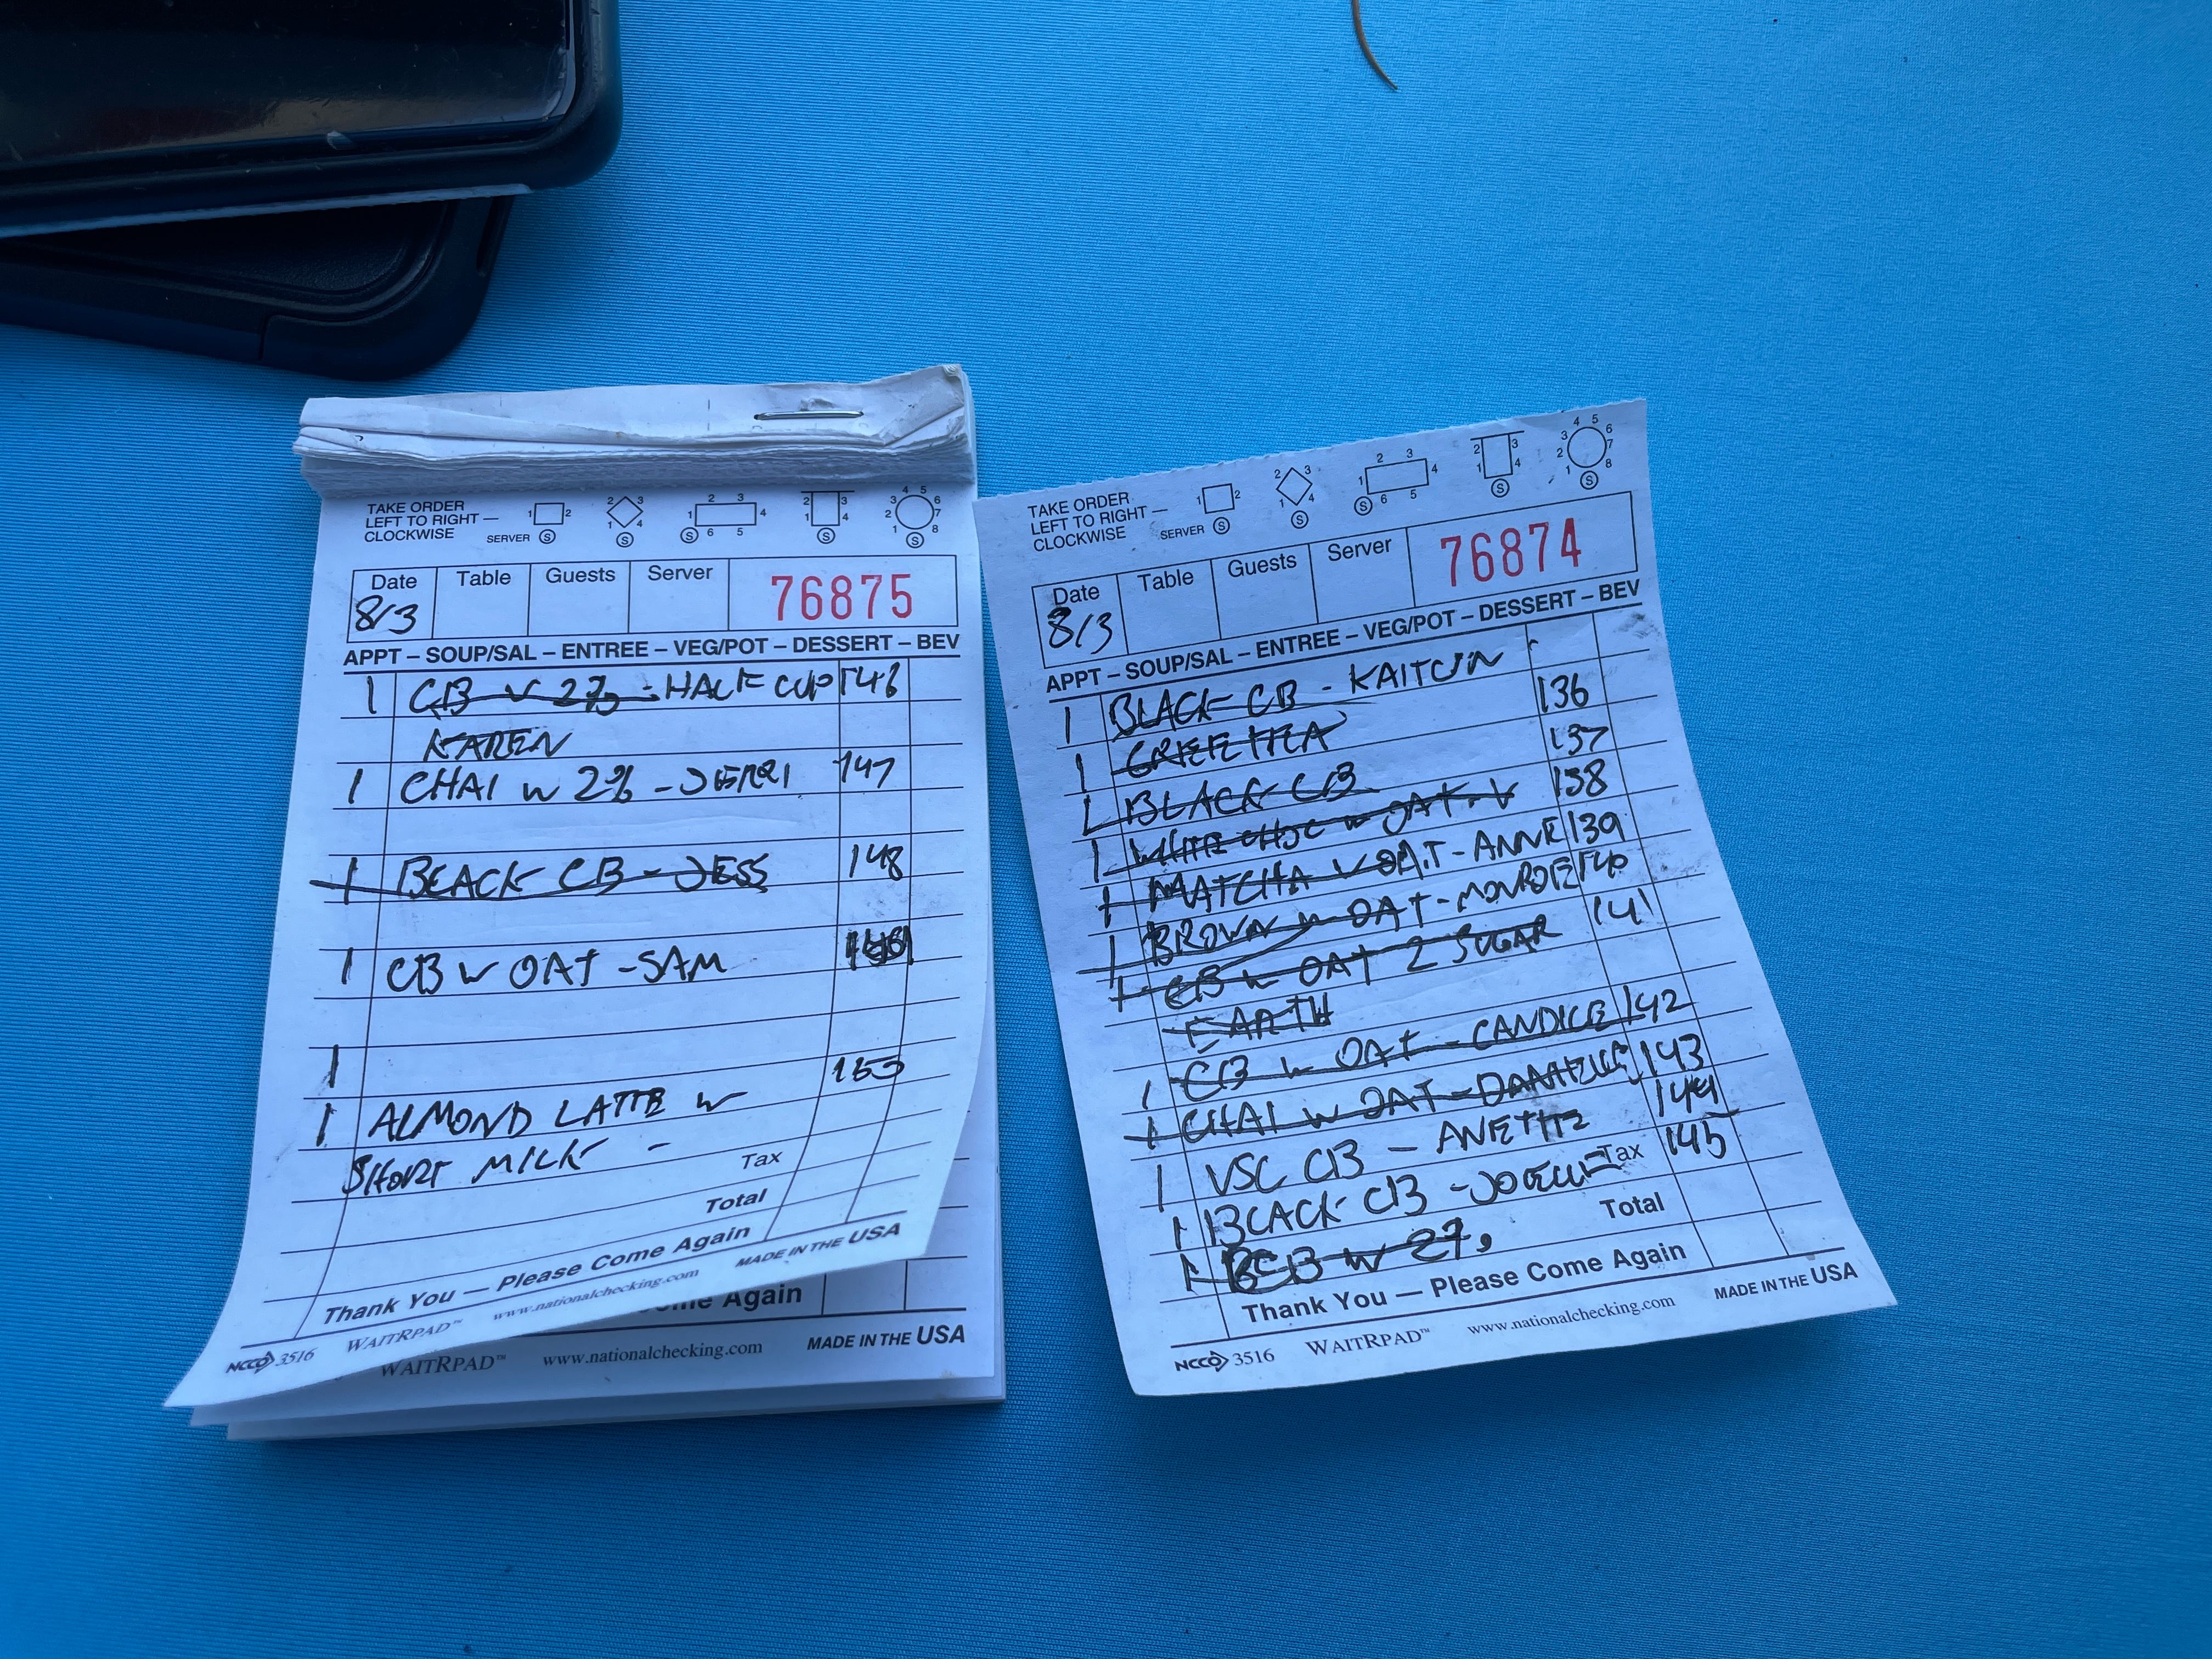 TAKE ORDER
LEFT TO RIGHT —
CLOCKWISE
SERVER S
1 2
S
1 2 3 4
S
1 2 3 4 5 6
S
1 2 3 4
S
1 2 3 4 5 6 7 8
S
Date Table Guests Server 76875
8/3
APPT – SOUP/SAL – ENTREE – VEG/POT – DESSERT – BEV
1 CB w 2% - HALF CUP 146
KAREN
1 CHAI w 2% - JERRI 147
1 BLACK CB - JESS 148
1 CB w OAT - SAM
1
1 ALMOND LATTE w 153
SHORT MILK -
Tax
Total
Thank You — Please Come Again
NCCO 3516 WAITRPAD™ www.nationalchecking.com MADE IN THE USA
ome Again
WAITRPAD™ www.nationalchecking.com MADE IN THE USA
TAKE ORDER
LEFT TO RIGHT —
CLOCKWISE
SERVER S
1 2
1 2 3 4
S
1 2 3 4 5 6
S
1 2 3 4
S
1 2 3 4 5 6 7 8
S
Date Table Guests Server 76874
8/3
APPT – SOUP/SAL – ENTREE – VEG/POT – DESSERT – BEV
1 BLACK CB - KAITLIN
1 136
1 BLACK CB 137
1 WHITE w OAT - V 138
1 MATCHA w OAT - ANNE 139
1 BROWN w OAT - MONROE 140
1 CB w OAT 2 SUGAR 141
EARTH
1 CB w OAT - CANDICE 142
1 CHAI w OAT - DANIELLE 143
1 VSC CB - ANETTE 144
1 BLACK CB - JOELLE Tax 145
1 CB w 2%
Total
Thank You — Please Come Again
NCCO 3516 WAITRPAD™ www.nationalchecking.com MADE IN THE USA